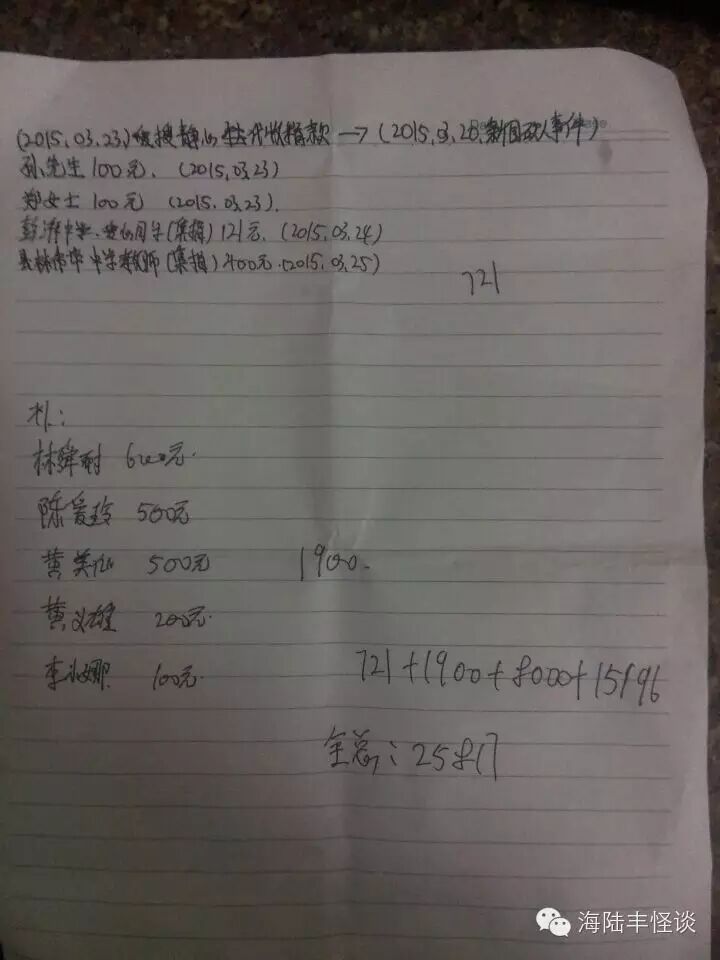 (2015.03.23) 静 代收捐款 → (2015.03.26. 事件)
孙先生 100元. (2015.03.23)
郑女士 100元 (2015.03.23).
彭湃中学 同学(集捐) 121元. (2015.03.24)
县林伟华中学教师(集捐) 400元. (2015.03.25)
721
补:
林舜耐 600元.
陈爱玲 500元
黄美 500元
1900.
黄义雄 200元.
李 娜 100元.
721+1900+8000+15196
全总: 25817
海陆丰怪谈